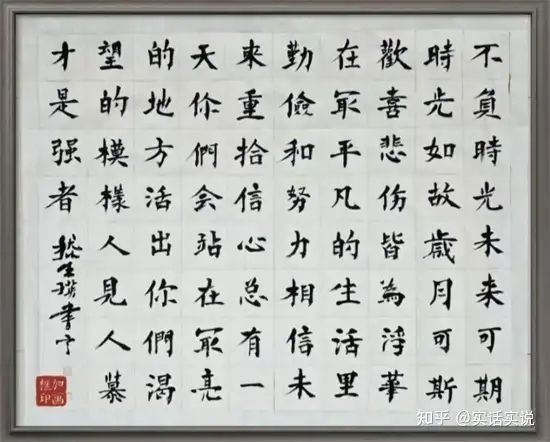 不負時光未来可期
時光如故歲月可斯
歡喜悲伤皆為浮華
在冣平凡的生活里
勤儉和努力相信未
來重拾信心总有一
天你們会站在冣亮
的地方活出你們渴
望的模樣人見人慕
才是强者
知乎 @实话实说